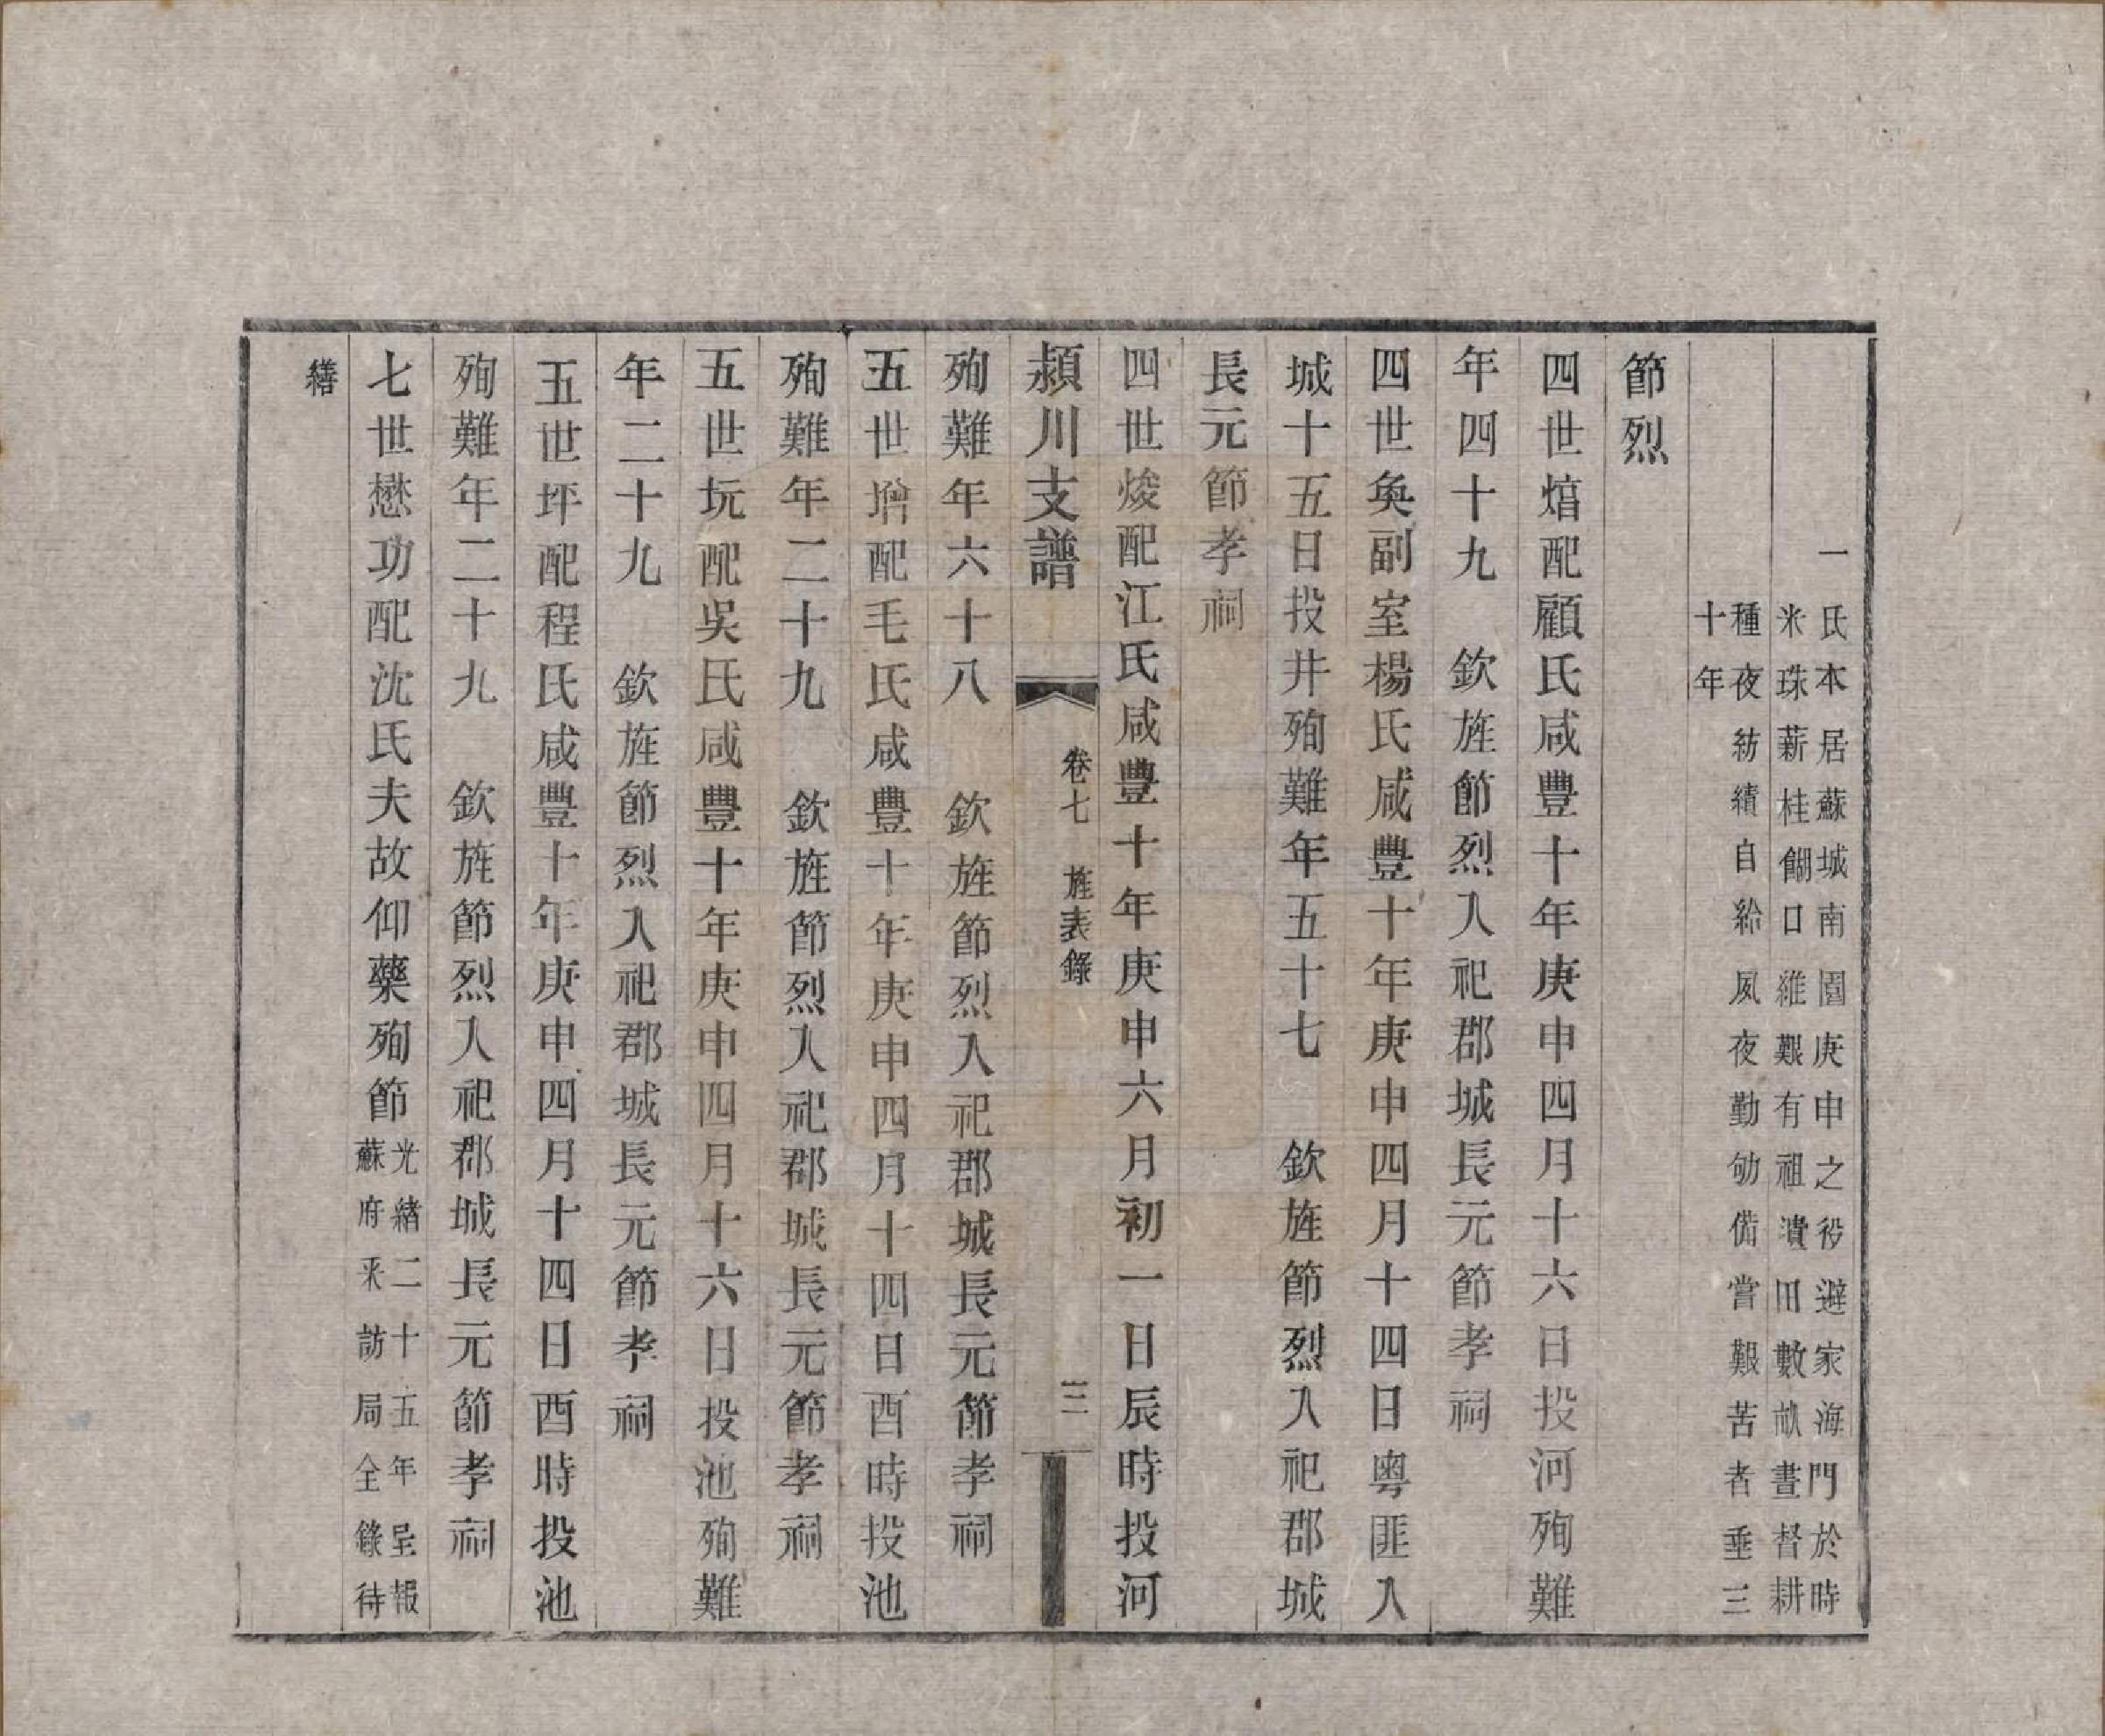 一
氏本居蘇城南園庚申之役避家海門於時
米珠薪桂餬口維艱有祖遺田數畝晝督耕
種夜紡績自給夙夜勤劬備嘗艱苦者垂三
十年
節烈
四世焙配顧氏咸豐十年庚申四月十六日投河殉難
年四十九　欽旌節烈入祀郡城長元節孝祠
四世奐副室楊氏咸豐十年庚申四月十四日粵匪入
城十五日投井殉難年五十七　欽旌節烈入祀郡城
長元節孝祠
四世焌配江氏咸豐十年庚申六月初一日辰時投河
潁川支譜　卷七　旌表錄　三
殉難年六十八　欽旌節烈入祀郡城長元節孝祠
五世增配毛氏咸豐十年庚申四月十四日酉時投池
殉難年二十九　欽旌節烈入祀郡城長元節孝祠
五世坃配吳氏咸豐十年庚申四月十六日投池殉難
年二十九　欽旌節烈入祀郡城長元節孝祠
五世坪配程氏咸豐十年庚申四月十四日酉時投池
殉難年二十九　欽旌節烈入祀郡城長元節孝祠
七世懋功配沈氏夫故仰藥殉節光緒二十五年呈報
蘇府采訪局全錄待
繕